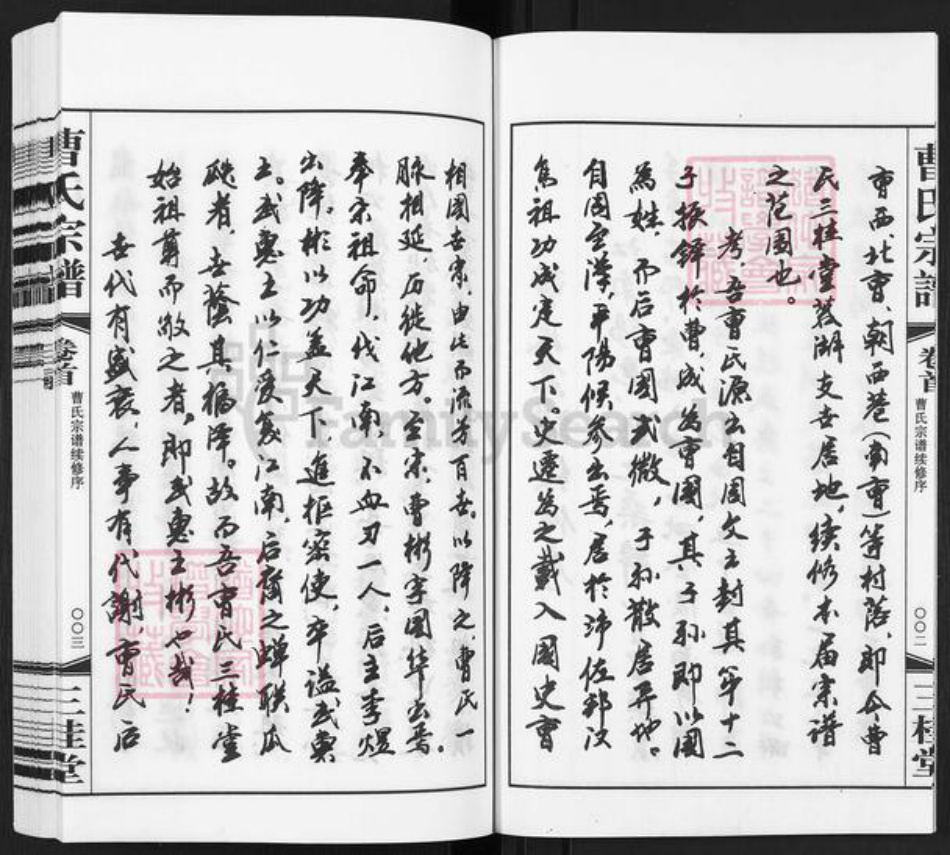 曹氏宗谱
卷首
曹氏宗谱续修序
〇〇二
三桂堂
曹西北曹、朝西巷(南曹)等村落,即今曹
氏三桂堂芳湖支世居地,续修本届宗谱
之范围也。
考吾曹氏源出自周文王封其第十二
子振铎于曹,成为曹国,其子孙即以国
为姓,而后曹国式微,子孙散居异地。
自周至汉,平阳候参出焉,居于沛佐邦汉
高祖功成定天下。史迁为之载入国史曹
相国世宗,由此而流芳百世。以降之曹氏一
脉相延,历徙他方。至宋曹彬字国华出焉。
奉宋祖命,伐江南,不血刃一人,后主李煜
出降。彬以功盖天下,进枢密使,卒谥武惠
王。武惠王以仁爱
江南,后裔之蝉联瓜
瓞者,世荫其福泽。故而吾曹氏三桂堂
始祖尊而敬之者。即武惠王彬也哉!
世代有盛衰,人事有代谢,曹氏后
曹氏宗谱
卷首
曹氏宗谱续修序
〇〇三
三桂堂
FamilySearch